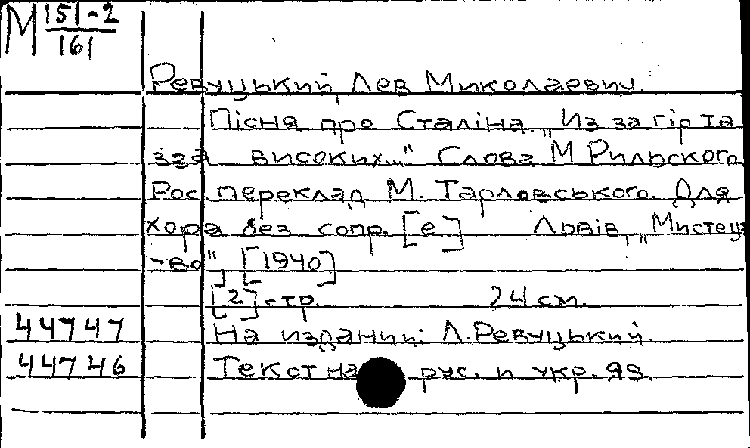 М 151-2
161
Ревуцький, Лев Миколаевич.
Пісня про Сталіна. „Из за гір та
зза високих..." Слова М Рильского.
Рос. переклад М. Тарловського. Для
хора без сопр. [е.] Львів, „Мистец-
-во", [1940]
[2] стр. 24 см.
44747 На издании: Л. Ревуцький.
44746 Текст на рус. и укр. яз.